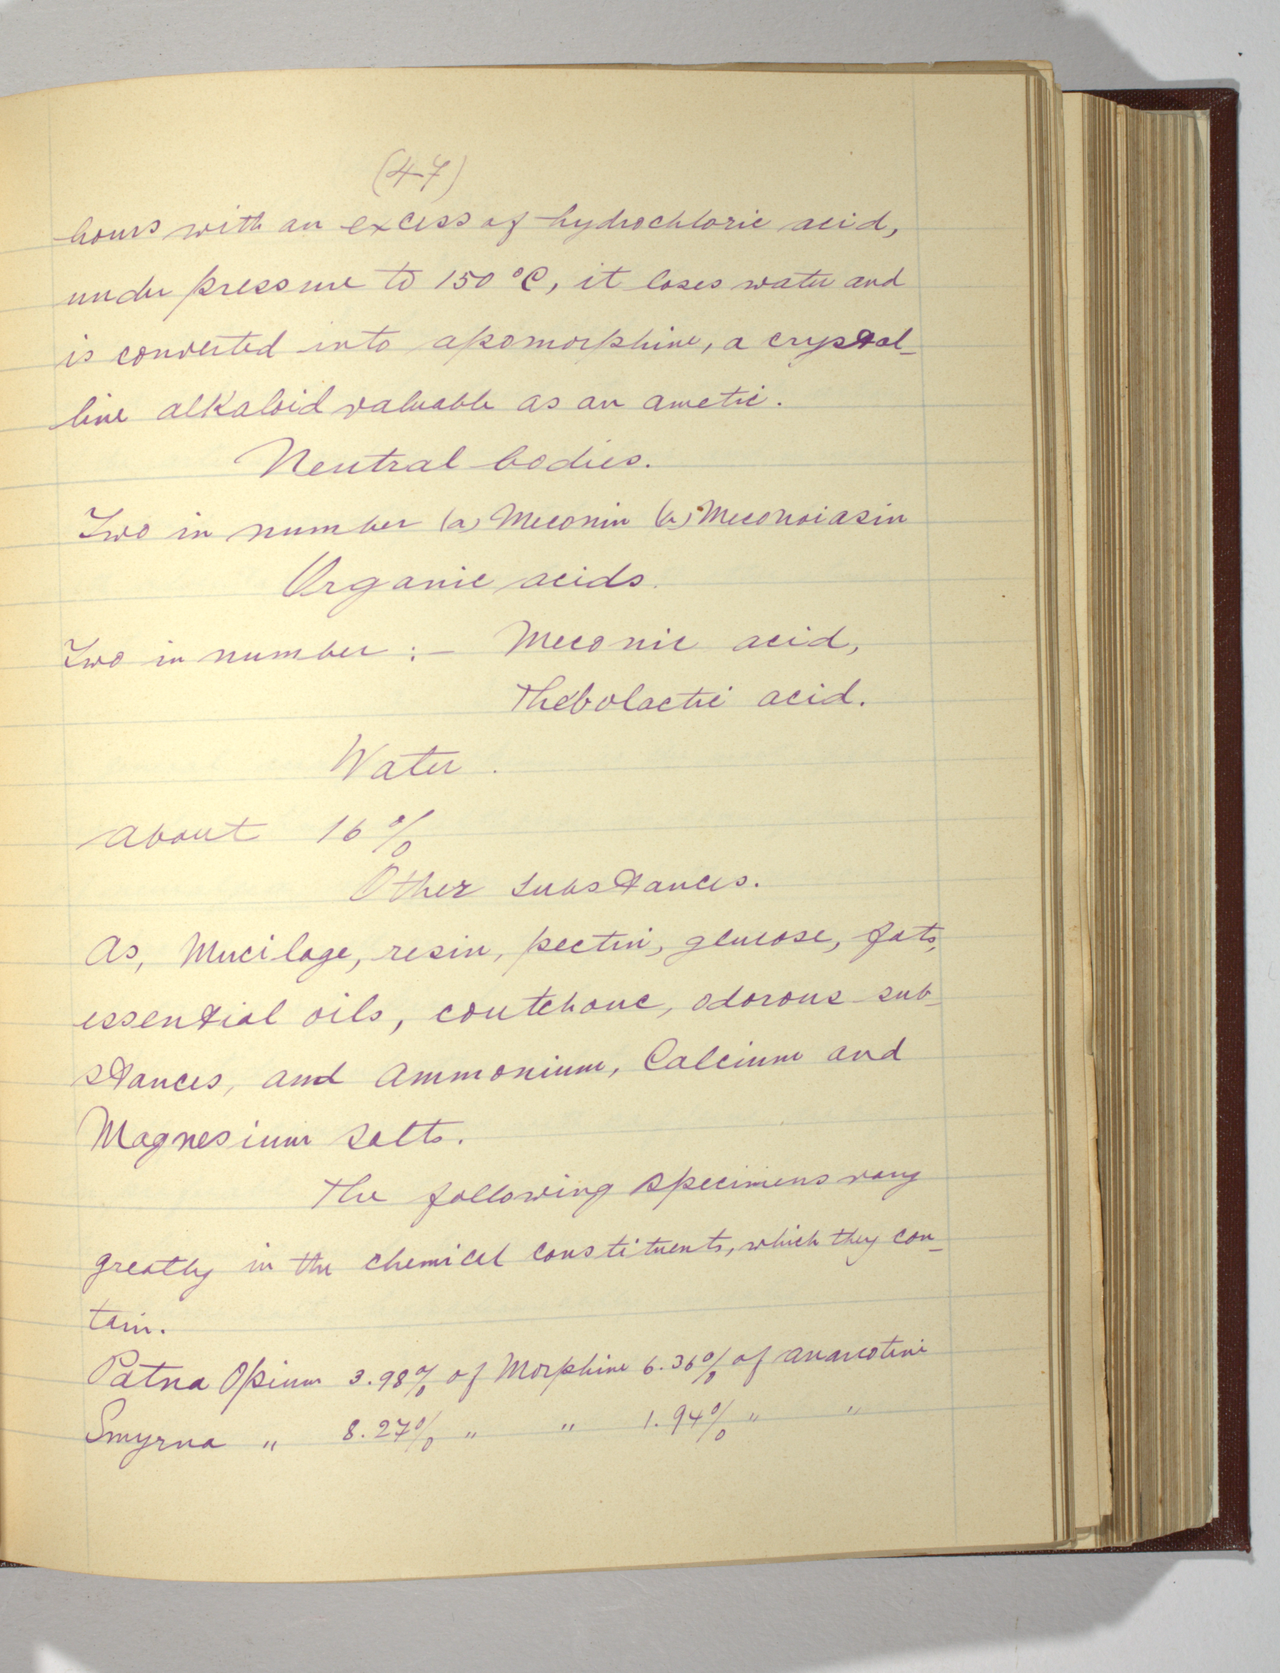 (47)
hours with an excess of hydrochloric acid,
under pressure to 150 °C, it loses water and
is converted into apomorphine, a crystal-
line alkaloid valuable as an ametic.
Neutral bodies.
Two in number (a) Meconin (b) Meconoiasin
Organic acids.
Two in number :- Meconic acid,
Thebolactic acid.
Water.
about 16 %
Other substances.
As, Mucilage, resin, pectin, glucose, fats,
essential oils, coutchouc, odorous sub-
stances, and Ammonium, Calcium and
Magnesium salts.
The following specimens vary
greatly in the chemical constituents, which they con-
tain.
Patna Opium 3.98% of Morphine 6.36% of anarcotine
Smyrna " 8.27% " " 1.94% " "